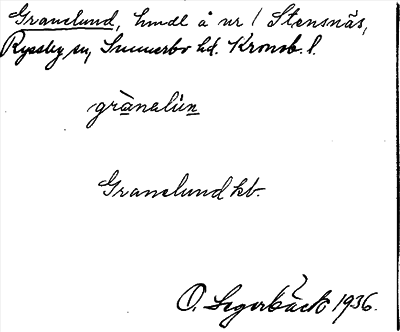 Granelund, hmdl å nr 1 Stensnäs,
Ryssby sn, Sunnerbo hd. Kronob. l.
grànelùn
Granelund kb.
O. Segerbäck 1936.